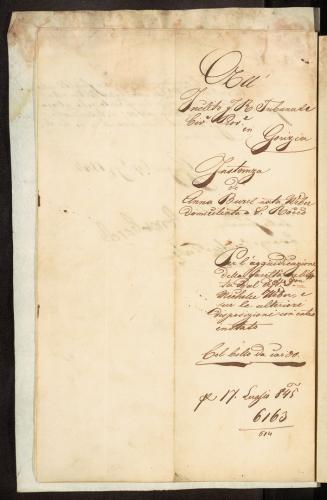 All'
Inclito I. R. Tribunale
Civ.e Prov.e
in
Gorizia
Instanza
di
Anna Burel nata Weber
domiciliata a S. Rocco
Per l'aggiudicazione
della facoltà
dal
Michele Weber e
per le ulteriori
disposizioni
Col bollo da car 30.
17. Luglio 845
6163